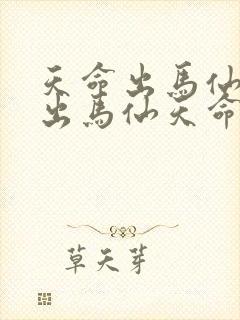 天命出馬仙
出馬仙天命
草天芽